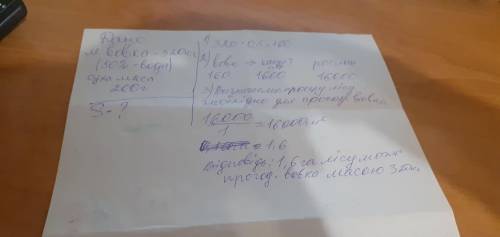 Дано
м вовка - 320кг
(50% - води)
суха маса
200г
S - ?
1) 320 · 0,5 = 160
2) вовк → заєць → рослин
160 1600 16000
3) Визначаємо площу лісу
необхідно для прогод. вовка
16000
1 = 16000 м²
= 1,6
Відповідь: 1,6 га лісу може
прогод. вовка масою